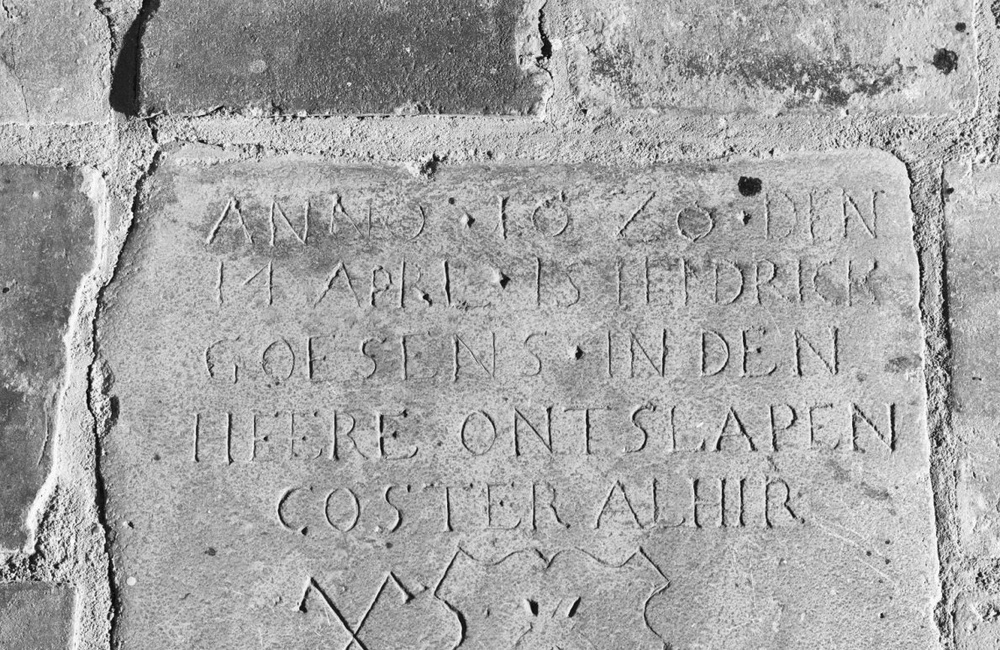 ANNO · 16 20 · DEN
14 APRL · IS HEIDRICK
GOESENS · IN DEN
HEERE ONTSLAPEN
COSTER ALHIR